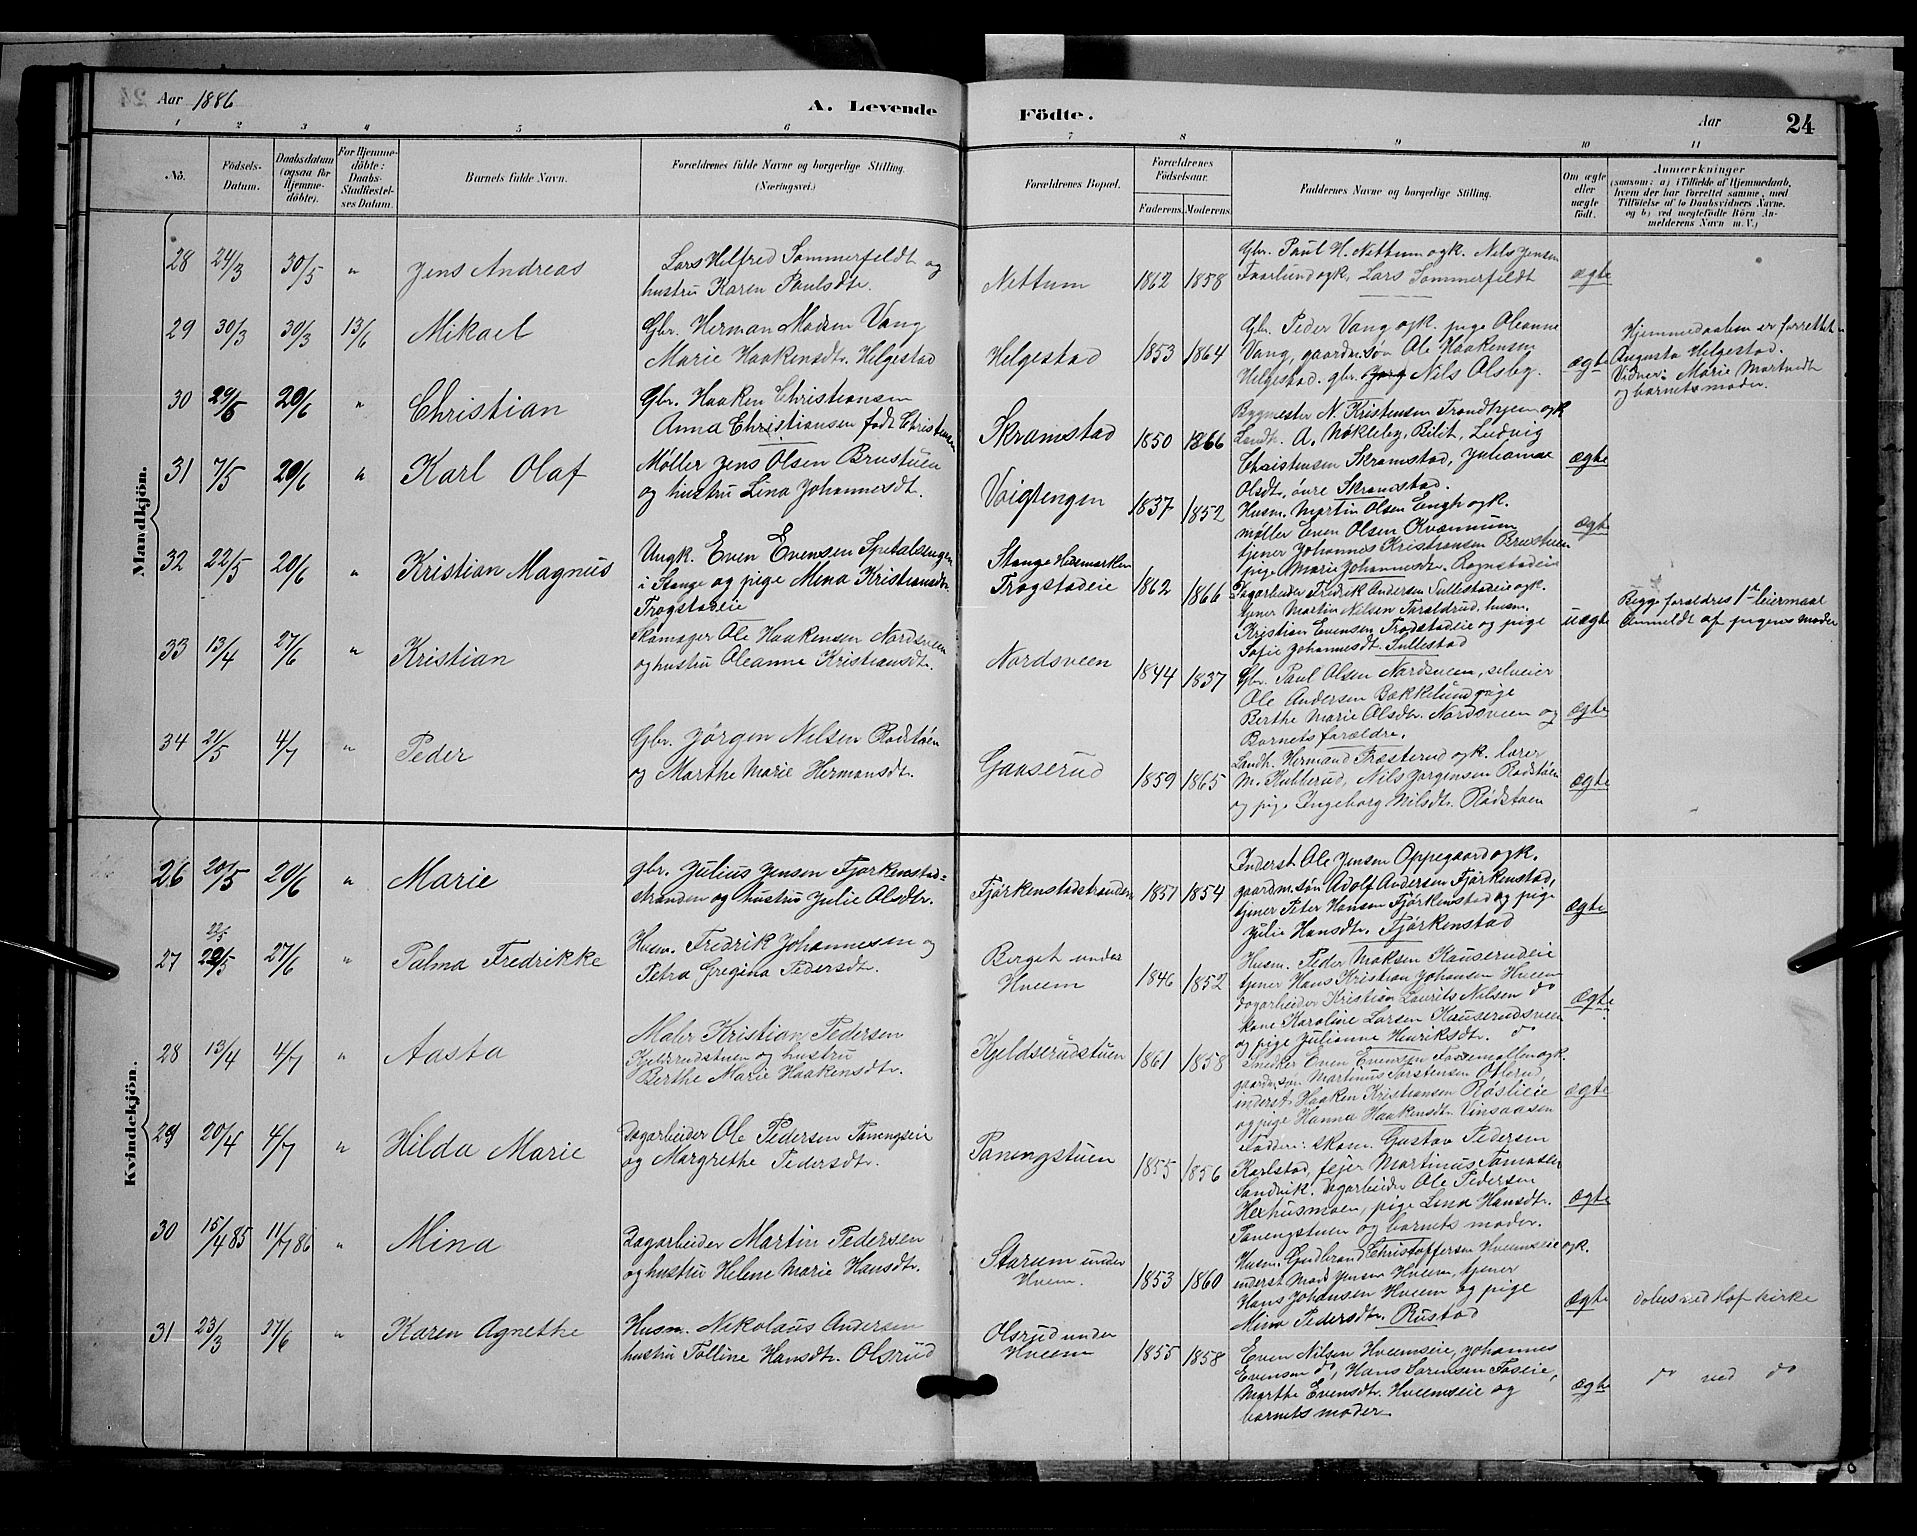 24
Aar 1886
A. Levende
Födte.
Aar
24
1 2 3 4 5 6 7 8 9 10 11
No.
Födsels-
Datum.
Daabsdatum
(ogsaa for
Hjemme-
döbte).
For Hjemme-
döbte:
Daabs-
Stadfæstel-
ses Datum.
Barnets fulde Navn.
Forældrenes fulde Navne og borgerlige Stilling.
(Næringsvei.)
Forældrenes Bopæl.
Forældrenes
Födselsaar.
Faderens. Moderens.
Faddernes Navne og borgerlige Stilling.
Om ægte
eller
uægte
født.
Anmærkninger
(saasom: a) i Tilfælde af Hjemmedaab,
hvem der har forrettet samme, med
Tilföielse af to Daabsvidners Navne.
og b) ved uægtefödte Börn An-
melderens Navn m. V.)
Mandkjön.
28 24/3 30/5 " Jens Andreas
Lars Helfred Sommerfeldt og
hustru Karen Paulsdtr.
Nettum 1862 1858
Gbr. Paul H. Nettum ogk. Nils Jensen
Faarlund ogk, Lars Sommerfeldt
ægte
29 30/3 30/3 13/6 Mikael
Gbr. Herman Madsen Vang
Marie Haakensdtr. Helgestad
Helgestad 1853 1864
Gbr. Peder Vang ogk. pige Oleanne
Vang, gaardm.søn Ole Haakensen
Helgestad. gbr. Nils Alsby.
ægte
Hjemmedaaben er forrettet
Augusta Helgestad.
Vidner: Marie Martvedt
og barnets moder.
30 29/5 20/6 " Christian
Gbr. Haaken Christiansen
Anna Christiansen født Christensen
Skramstad 1850 1866
Bygmester N. Kristensen Trondhjem ogk
Landh. A. Nøkleby, Bilit, Ludvig
Christensen Skramstad, Julianne
Olsdt, øvre Skramstad.
ægte
31 7/5 20/6 " Karl Olaf
Møller Jens Olsen Brustuen
og hustru Lina Johannesdt.
Voigtengen 1837 1852
Husm. Martin Olsen Engh ogk.
møller Even Olsen Kværnum
tjener Johannes Kristiansen Brustuen
pige Marie Johannesdt. Rognstadeie
ægte
32 22/5 20/6 " Kristian Magnus
Ungk. Even Evensen Spetalsengen
i Stange og pige Mina Kristiansdtr.
Trogstadeie
Stange Hedemarken
Trogstadeie 1862 1866
Dagarbeider Fredrik Andersen Sullestadeie ogk.
tjener Martin Nilsen Farstdrud. husm.
Kristian Evensen Trogstadeie og pige
Sofie Johannesdt. Sullestad
uægte
Begge foraldres 1ste leiermaal
Anmeldt af pigens moder
33 13/4 27/6 " Kristian
Skomager Ole Haakensen Nordsveen
og hustru Oleanne Kristiansdt.
Nordsveen 1844 1837
Gbr. Paul Olsen Nordsveen, selveier
Ole Andersen Bækkelund pige
Berthe Marie Olsdtr. Nordsveen og
Barnets forældre.
ægte
34 21/5 4/7 " Peder
Gbr. Jørgen Nelsen Rodstøen
og Marthe Marie Hermansdt.
Gaaserud 1859 1865
Landh. Hermand Præsterud ogk. lærer
M. Kubberud, Nils Jørgensen Rodstøen
og pige Ingeborg Nilsdt. Rødstøen
ægte
Kvindekjön.
26 20/5 20/6 " Marie
Gbr. Julius Jensen Fjørkenstad-
stranden og hustru Julie Olsdtr.
Fjørkenstadstranden 1851 1854
Inderst Ole Jensen Oppegaard ogk.
gaardm.søn Adolf Andersen Fjørkenstad,
tjener Peter Hansen Fjørkenstad og pige
Julie Hansdt. Fjørkenstad
ægte
22/5
27 22/5 27/6 " Palma Fredrikke
Husm. Fredrik Johannesen og
Petra Gregina Pedersdt.
Berget under
Hveem 1846 1852
Husm. Peder Maksen Hauserudeie
tjener Hans Kristian Johansen Hveem
dagarbeider Kristian Laurits Nilsen do
kone Karoline Larsen Hauserudsveen
og pige Julianne Henriksdt. do
ægte
28 13/4 4/7 " Aasta
Maler Kristian Pedersen
Kjeldsrudstuen og hustru
Berthe Marie Haakensdt.
Kjeldserudstuen 1861 1858
Snedker Even Evensen Fossemøllen ogk.
gaardm.søn Martinus Torstensen Oterud,
inderst Haaken Kristiansen Røslieie
og pige Hanna Haakensdt. Vinsaasen
ægte
29 20/4 4/7 " Hilda Marie
Dagarbeider Ole Pedersen Panengseie
og Margrethe Pedersdt.
Panengstuen 1855 1856
Faddere: skom. Gustav Pedersen
Karlstad, fejer Martinus Tomassen
Sandvik. Dagarbeider Ole Pedersen
Hexhusmoen, pige Lina Hansdt.
Panengstuen og barnets moder.
ægte
30 15/4 85 11/7 86 " Mina
Dagarbeider Martin Pedersen
og hustru Helene Marie Hansdt.
Starum under
Hveem. 1853 1860
Husm. Gudbrand Christoffersen Hveemseie ogk.
inderst Mads Jensen Hveem, tjener
Hans Johansen Hveem og pige
Mina Pedersdt. Rustad
ægte
døbes ved Hof kirke
31 23/3 27/6 " Karen Agnethe
Husm. Nikolaus Andersen
hustru Tolline Hansdt. Olsrud
Olsrud under
Hveem 1855 1858
Even Nilsen Hveemseie, Johannes
Evensen do, Hans Sørensen Foseie,
Marthe Evensdt. Hveemseie og
barnets moder.
ægte
do ved do